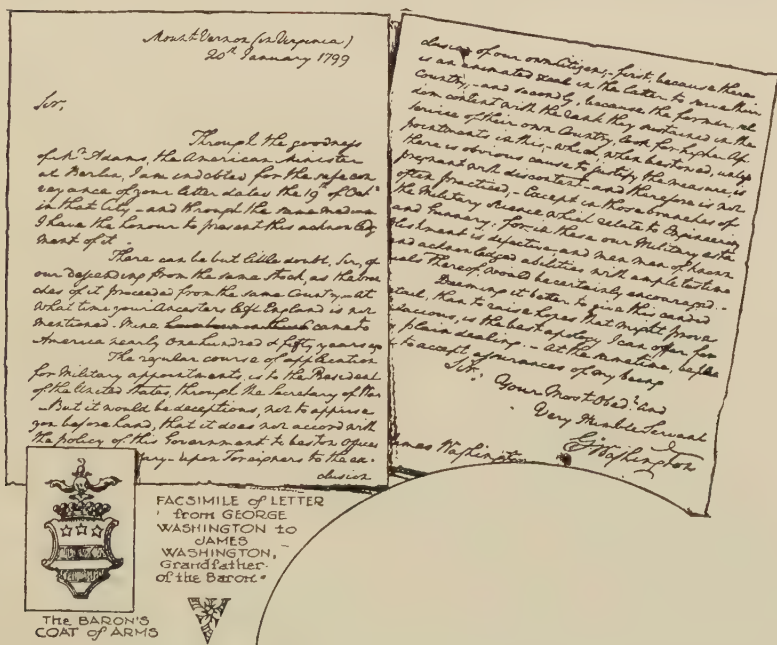 Mount Vernon (in Virginia)
20th January 1799
Sir,
Through the goodness
of Mr. Adams, the American Minister
at Berlin, I am indebted for the safe con
veyance of your letter dated the 19th of Octr.
in that City – and through the same medium
I have the honour to present this acknowledg
ment of it.
There can be but little doubt, Sir, of
our descending from the same stock, as the bran
ches of it proceeded from the same Country. – At
what time your Ancestors left England is not
mentioned. Mine came to
America nearly one hundred & fifty years ago
The regular course of application
for Military appointments, is to the President
of the United States, through the Secretary of War
– But it would be deceptious, not to apprise
you before hand, that it does not accord with
the policy of this Government to bestow offices
upon Foreigners to the ex-
clusion
clusion of our own Citizens; – first, because there
is an animated zeal in the latter to serve their
Country; – and secondly, because the former, sel
dom content with the rank they sustained in the
service of their own Country, look for higher Ap
pointments in this; which, when bestowed, unless
there is obvious cause to justify the measure, is
pregnant with discontent – and therefore is not
often practiced. – Except in those branches of
the Military Science which relate to Engineering
and Gunnery; for in these our Military esta
blishment is defective, and men of known
and acknowledged abilities with ample testimo
nials thereof, would be certainly encouraged. –
Deeming it better to give this candid
detail, than to raise hopes that might prove
fallacious, is the best apology I can offer for
my plain dealing. – At the same time, be pleas
to accept assurances of my being
Sir, Your Most Obedt. and
Very Humble Servant
Go Washington
James Washington
FACSIMILE of LETTER
from GEORGE
WASHINGTON to
JAMES
WASHINGTON,
Grandfather
of the Baron.
The BARON'S
COAT of ARMS